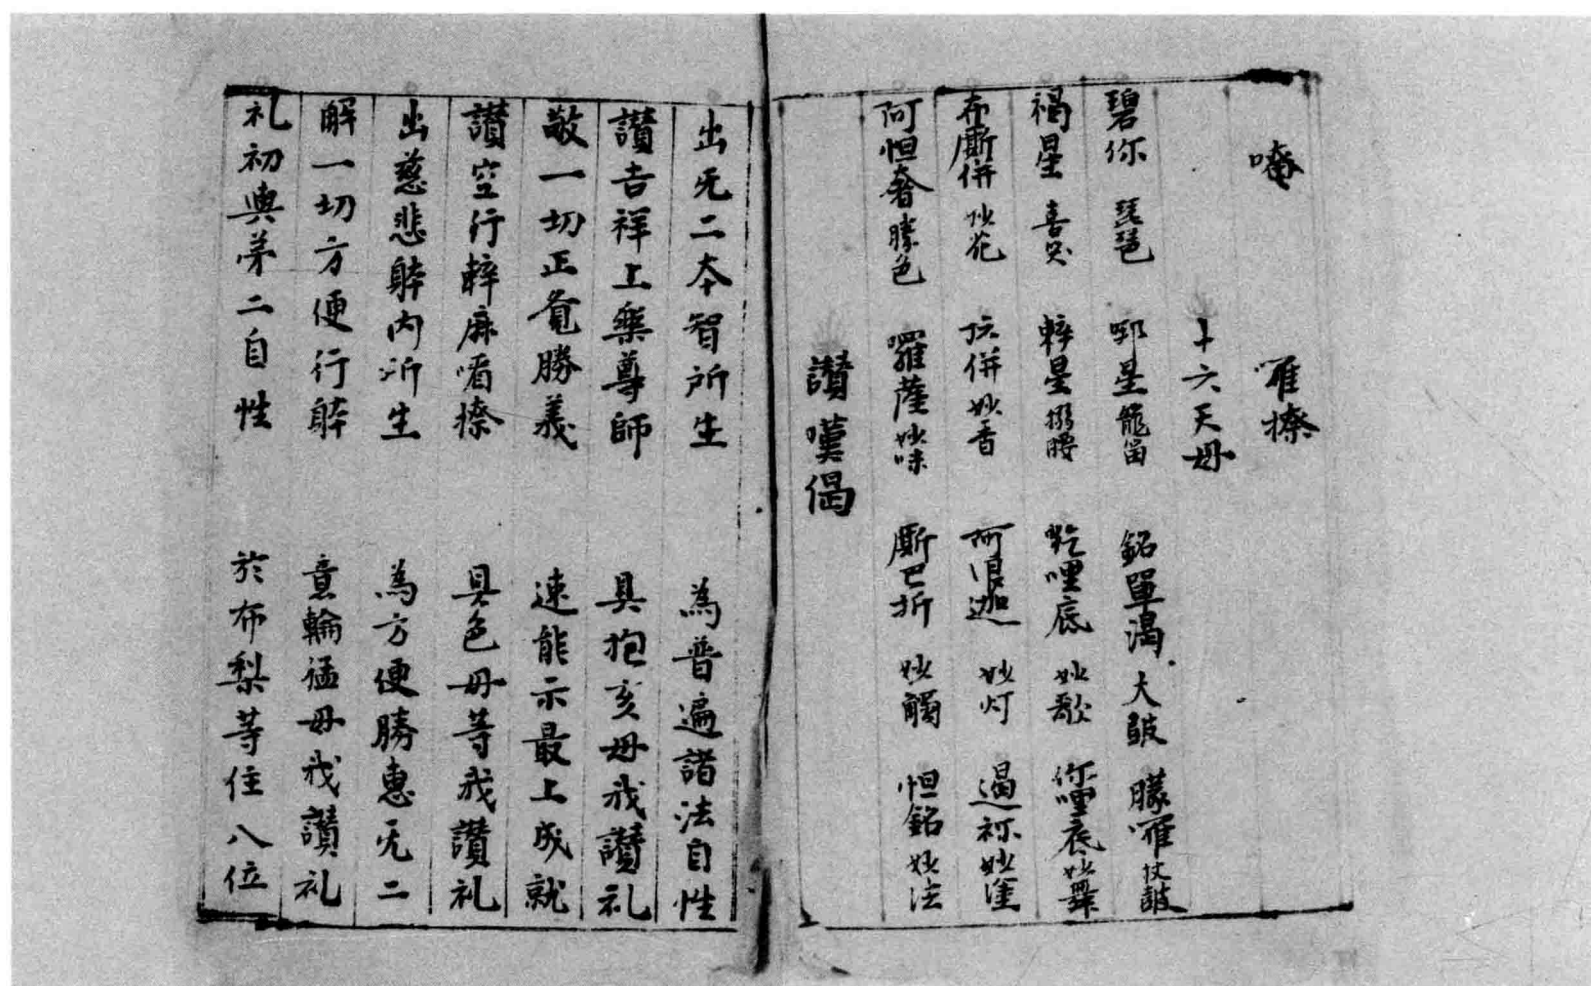 唵 㗭㨋
十六天母
碧你 琵琶 㖿星 龍笛 銘單渴 大皷 朦㗭 杖皷
褐星 喜笑 𨐌星 搦腰 乾哩底 妙歌 你哩底 妙舞
布廝併 妙花 妙香 阿浪迦 妙灯 遏祢 妙塗
阿怛奢 勝色 囉薩 妙味 廝巴折 妙觸 怛銘 妙法
讃嘆偈
出旡二本智所生 為普遍諸法自性
讃吉祥上樂尊師 具抱亥母我讃礼
敬一切正覔勝義 速能示最上成就
讃空行𨐌麻㖷㨋 具色母等我讃礼
出慈悲躰內所生 為方便勝惠旡二
解一切方便行躰 意輪猛母我讃礼
礼初與苐二自性 於布梨等住八位